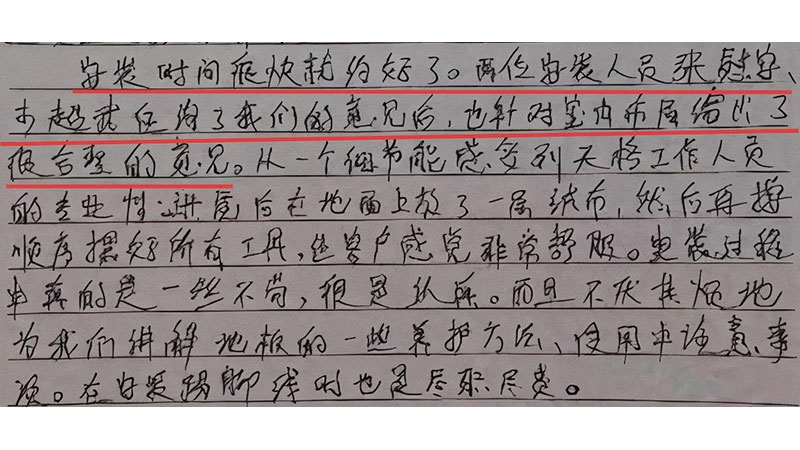 安装时间很快就约好了。两位安装人员张慰学、
李超武征询了我们的意见后，也针对室内布局给出了
很合理的意见。从一个细节能感受到天格工作人员
的专业性：进是后在地面上放了一层绒布，然后再按
顺序摆好所有工具，让客户感觉非常舒服。安装过程
中真的是一丝不苟，很是认真。而且不厌其烦地
为我们讲解地板的一些养护方法、使用中注意事
项。在安装踢脚线时也是尽职尽责。